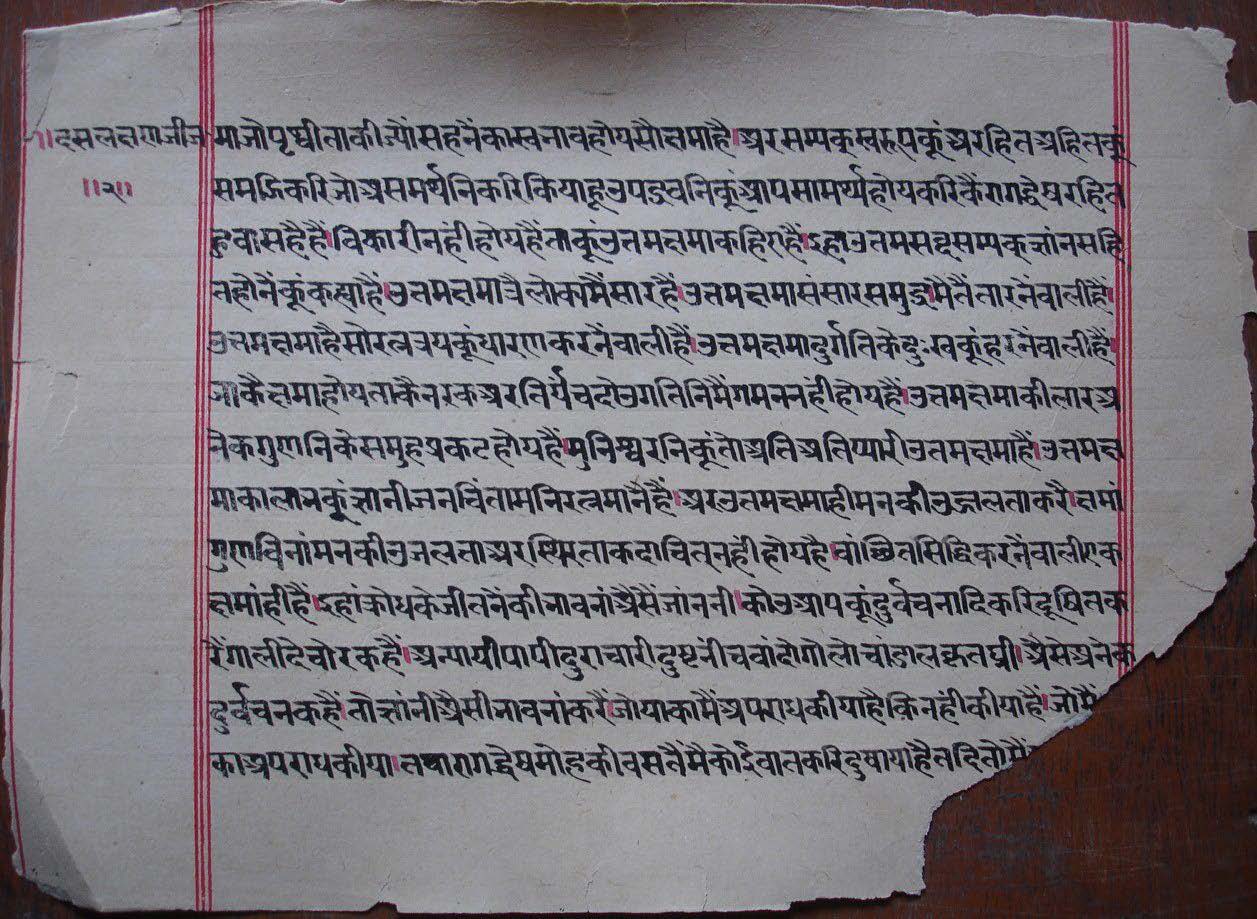 ॥दसलक्षणजीज
॥२॥
माजोपृथ्वीताकीज्यौंसहनैंकास्वभावहोयसौक्षमाहै।अरसम्यकस्वरुपकूंअरहितअहितकूं
समझिकरिजोअसमर्थनिकरिकियाहूउपद्रवनिकूंआपसामर्थ्यहोयकरिकैंरागद्वेषरहित
हुवासहैहैं।विकारीनहींहोयहैंताकूंउत्तमक्षमाकहिएहैं।इहाउत्तमसब्दसम्यक्ज्ञांनसहि
तहोनैंकूंकह्याहैं।उत्तमक्षमात्रैलोक्यमैंसारहैं।उत्तमक्षमासंसारसमुद्रमैतैंतारनैंवालीहैं।
उत्तमक्षमाहैसोरत्नत्रयकूंधारणकरनैंवालीहैं।उत्तमक्षमादुर्गतिकेदुःखकूंहरनैंवालीहैं।
जाकैक्षमाहोयताकैनरकअरतिर्यंचदोउगतिनिमैंगमननहींहोयहैं।उत्तमक्षमाकीलारअ
नेकगुणनिकेसमुहप्रकटहोयहैं।मुनिश्वरनिकूंतोअतिअतिप्यारीउत्तमक्षमाहैं।उत्तमक्ष
माकालाभकूंज्ञानीजनचिंतामनिरत्नमानैंहैं।अरउत्तमक्षमाहीमनकीउज्जलताकरै।क्षमां
गुणविनांमनकीउजलताअरस्थिरताकदाचित्नहींहोयहै।वांछितसिद्धिकरनैंवालीएक
क्षमांहींहैं।इहांक्रोधकेजीतनैंकीभावनांअैसैंजांननी।कोउआपकूंदुर्वचनादिकरिदूषितक
रैंगालीदेचोरकहैं।अन्यायीपापीदुराचारीदुष्टनींचचांदोगोलोचांडालकृतघ्नी।अैसेअनेक
दुर्वचनकहैं।तोज्ञांनीअैसीभावनांकरैं।जोयाकामैंअपराधकीयाहैकिनहींकीयाहैं।जोमैं
काअपराधकीया।तथारागद्वेषमोहकीवसतैंमैकोईवातकरिदुषायाहैतदितोमैं